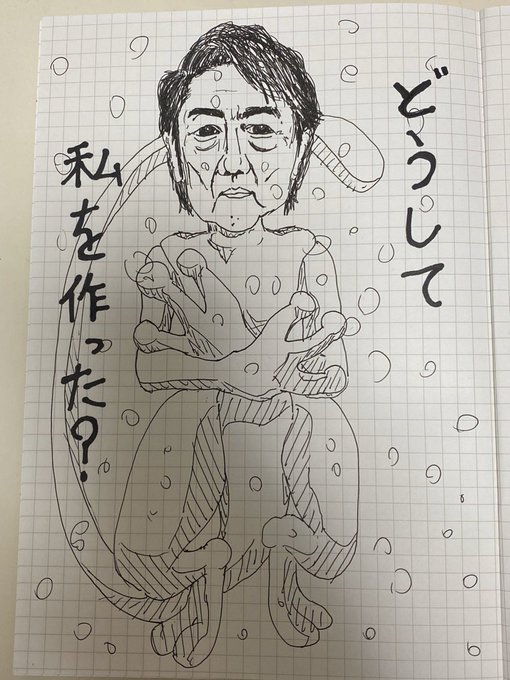 どうして
私を作った？